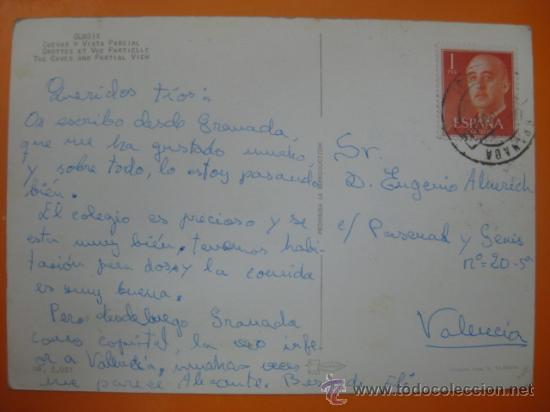 GUADIX
CUEVAS Y VISTA PARCIAL
GROTTES ET VUE PARTIELLE
THE CAVES AND PARTIAL VIEW
Queridos tíos:
Os escribo desde Granada,
que me ha gustado mucho,
y sobre todo, lo estoy pasando
bién.
El colegio es precioso y se
está muy bién, tenemos habi-
tación para dos, y la comida
es muy buena.
Pero desde luego Granada
como capital, la veo infe-
rior a Valencia, muchas veces
me parece Alicante. Besos de
1
PTA
ESPAÑA
GRANADA
PROHIBIDA LA REPRODUCCION
Sr.
D. Eugenio
c/ Pascual y Genis
nº=20-5ª
Valencia
todocoleccion
todocoleccion.net